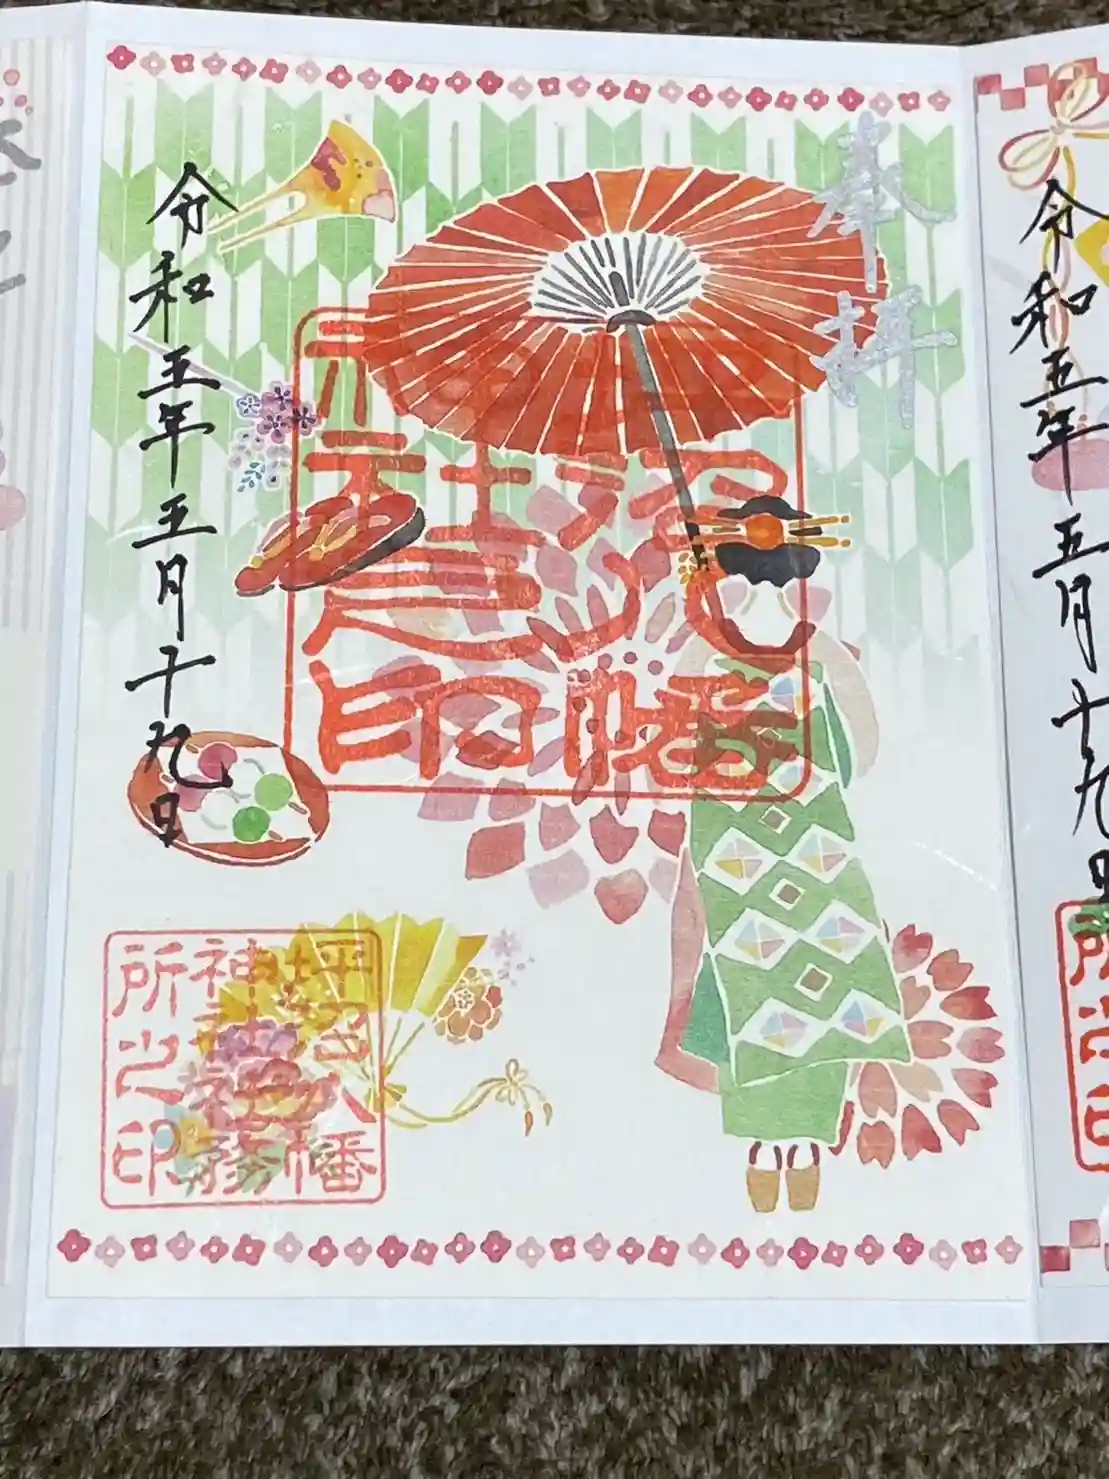 奉拝
坪沼八幡
神社之印
令和五年五月十九日
坪沼八幡
神社社務
所之印
令和五年五月十九日
所之印